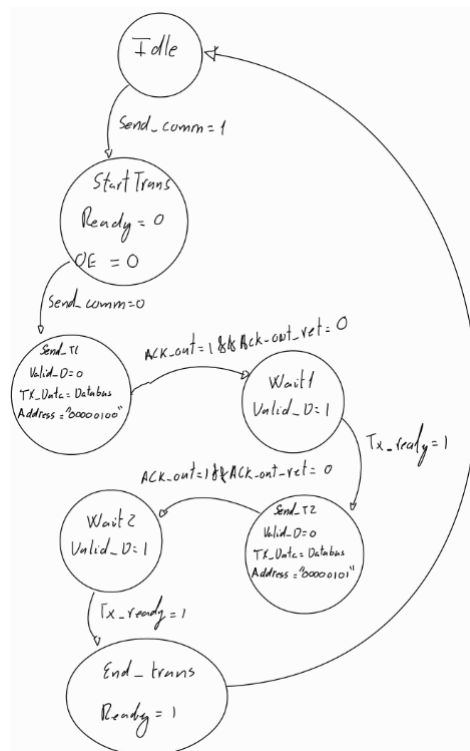 Idle
Send_comm=1
StartTrans
Ready = 0
OE = 0
Send_comm=0
Send_T1
Valid_D=0
TX_Data=Databus
Address="00000100"
ACK_out=1&&Ack_out_ret=0
Wait1
Valid_D=1
Tx_ready=1
Send_T2
Valid_D=0
TX_Data=Databus
Address="00000101"
ACK_out=1&&ACK_out_ret=0
Wait2
Valid_D=1
Tx_ready=1
End_trans
Ready=1